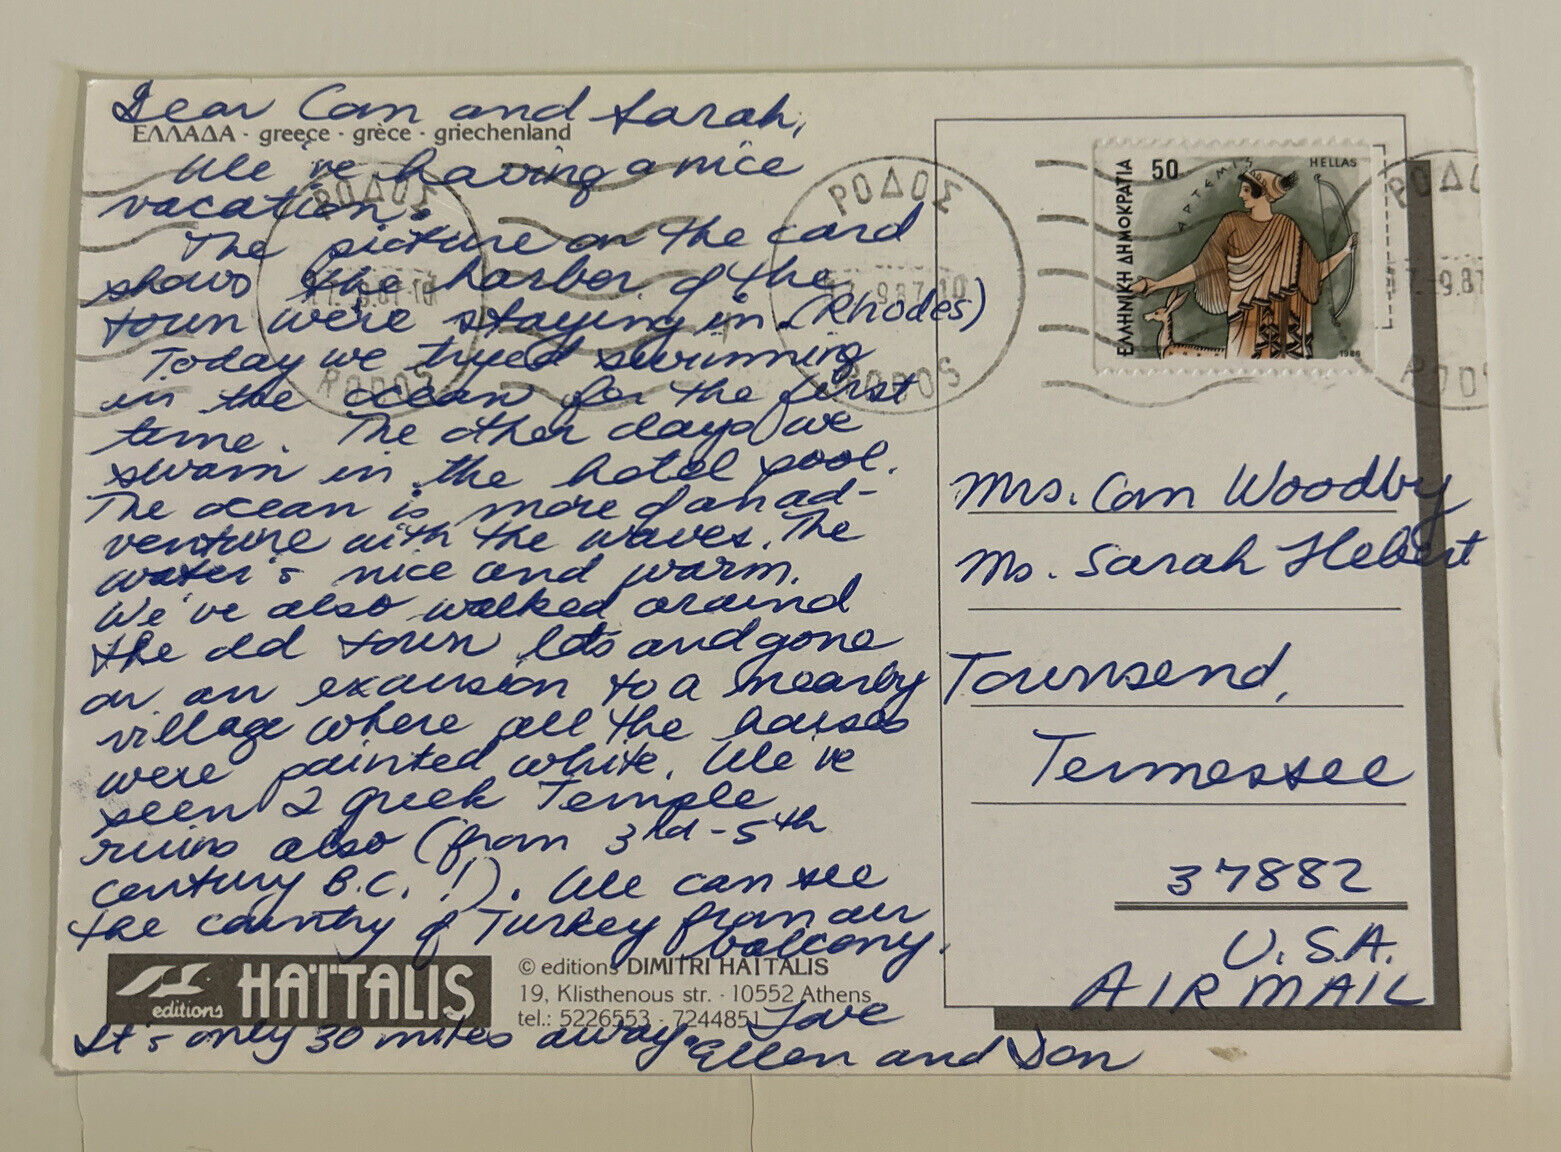 Dear Con and Sarah,
ΕΛΛΑΔΑ · greece · grèce · griechenland
We've having a nice
vacation.
The picture on the card
shows the harbor of the
town we're staying in. (Rhodes)
Today we tryed swimming
in the ocean for the first
time. The other days we
swam in the hotel pool.
The ocean is more of an ad-
venture with the waves. The
water's nice and warm.
We've also walked around
the old town lots and gone
on an excursion to a nearby
village where all the houses
were painted white. We've
seen 2 greek Temple
ruins also (from 3rd-5th
century B.C.!). We can see
the country of Turkey from our
balcony.
It's only 30 miles away.
Love
Ellen and Don
editions HAÏTALIS
© editions DIMITRI HAÏTALIS
19, Klisthenous str. · 10552 Athens
tel.: 5226553 - 7244851
ΡΟΔΟΣ
RODOS
ΡΟΔΟΣ
9.87.10
RODOS
ΕΛΛΗΝΙΚΗ ΔΗΜΟΚΡΑΤΙΑ
50
HELLAS
ΑΡΤΕΜΙΣ
1986
Mrs. Con Woodby
Ms. Sarah Hebert
Townsend,
Tennessee
37882
U.S.A.
AIRMAIL